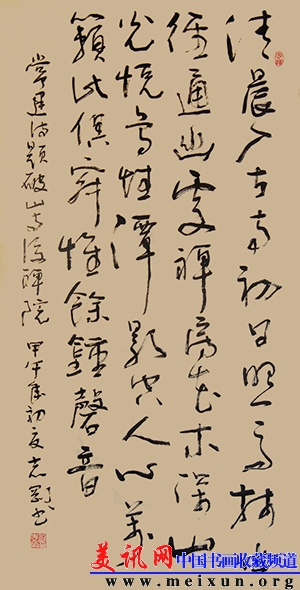 清晨入古寺初日照高林曲
徑通幽處禪房花木深山
光悦鸟性潭影空人心萬
籟此俱寂惟餘鐘磬音
常建诗題破山寺後禅院 甲午年初夏志剛书
美讯网 中国书画收藏频道
www.meixun.org